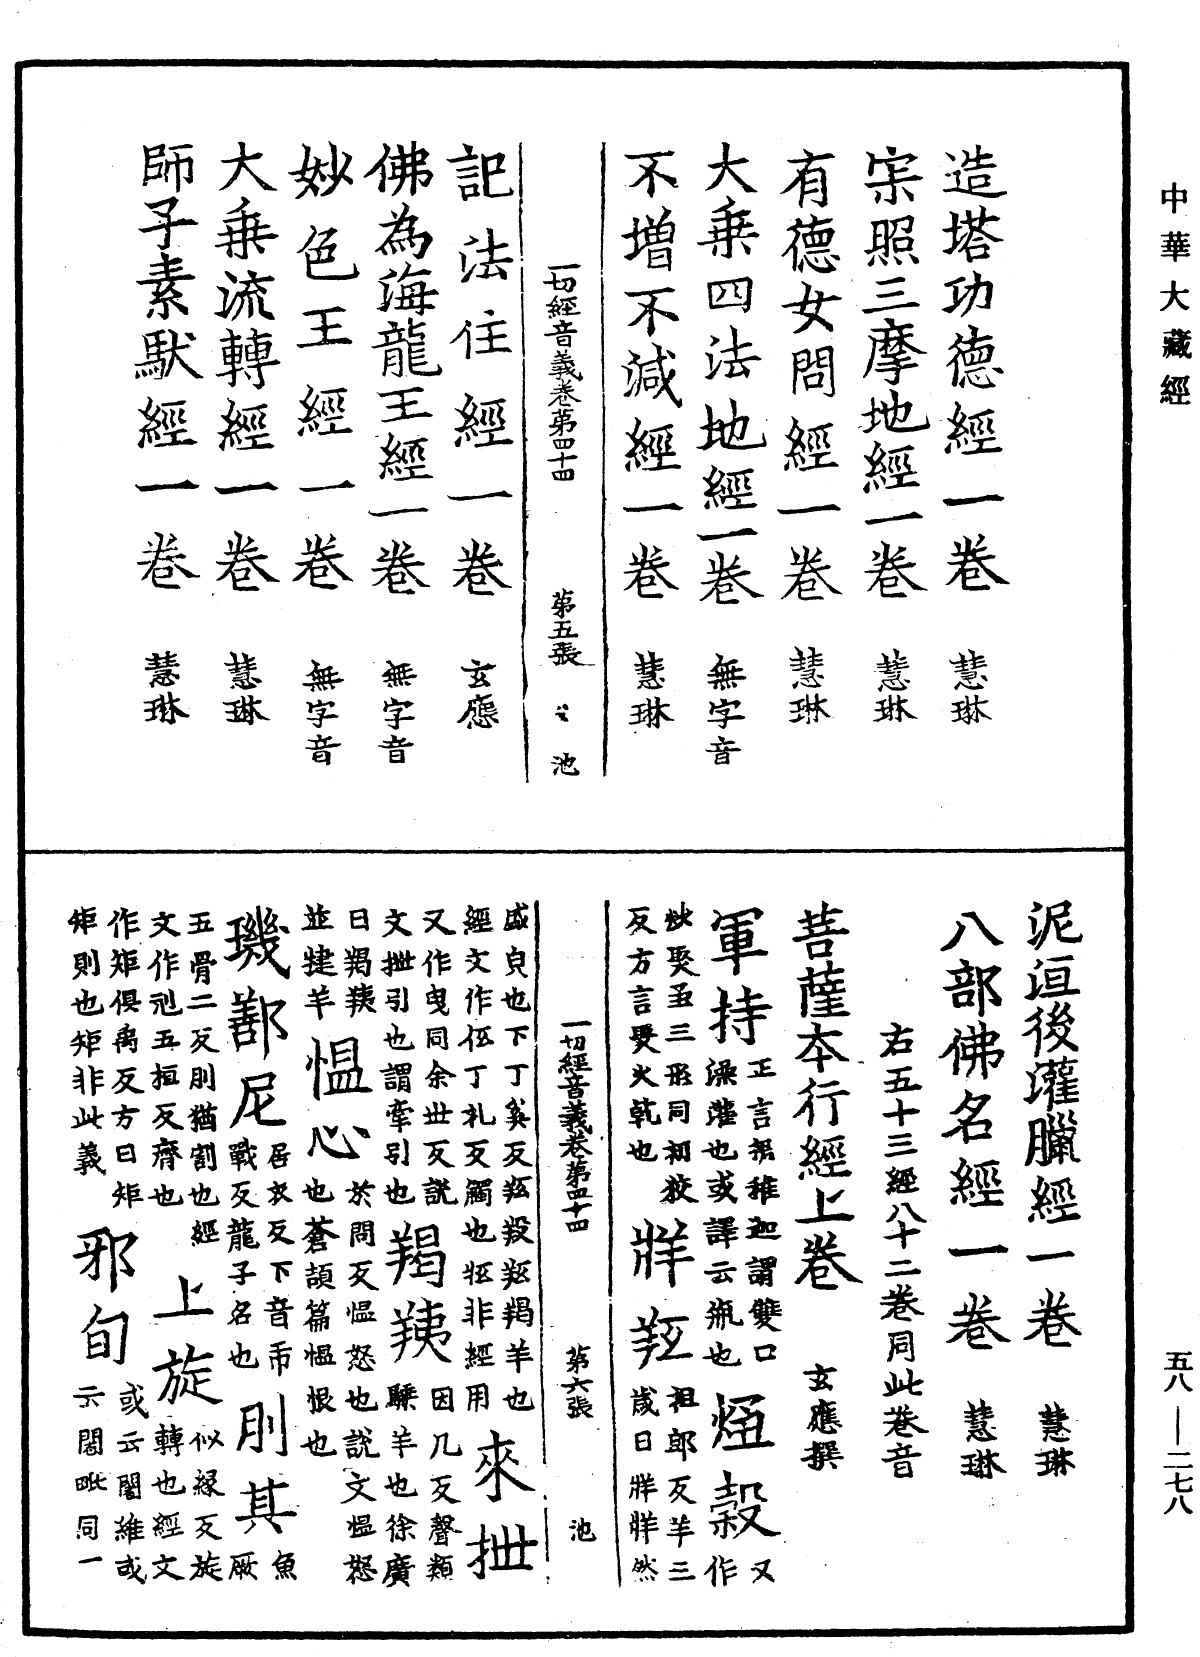 中華大藏經
造塔功德經一卷 慧琳
宗照三摩地經一卷 慧琳
有德女問經一卷 慧琳
大乘四法地經一卷 無字音
不增不減經一卷 慧琳
一切經音義卷第四十四 第五張 池
記法住經一卷 玄應
佛為海龍王經一卷 無字音
妙色王經一卷 無字音
大乘流轉經一卷 慧琳
師子素馱經一卷 慧琳
泥洹後灌臘經一卷 慧琳
八部佛名經一卷 慧琳
右五十三經八十二卷同此卷音
菩薩本行經上卷 玄應撰
軍持 正言捃稚迦謂雙口澡灌也或譯云瓶也 㷭穀 又作
炒聚𤆀三形同初狡反方言㷭火乾也 牂羖 祖郎反羊三歲曰牂牂然
盛皃也下丁奚反羝羖羝羯羊也
經文作伍丁礼反觸也牴非經用 來抴
又作曳同余世反說文抴引也謂牽引也 羯羠 因几反聲類騬羊也徐廣
曰羯羠並揵羊也 愠心 於問反愠怒也說文愠怒也蒼頡篇愠恨也
璣鄯尼 居衣反下音市戰反龍子名也 刖其 魚厥
五骨二反刖猶割也經文作刓五桓反齊也 上旋 似緣反旋轉也經文
作矩俱禹反方曰矩矩則也矩非此義 邪旬 或云闍維或云闍毗同一
一切經音義卷第四十四 第六張 池
五八—二七八